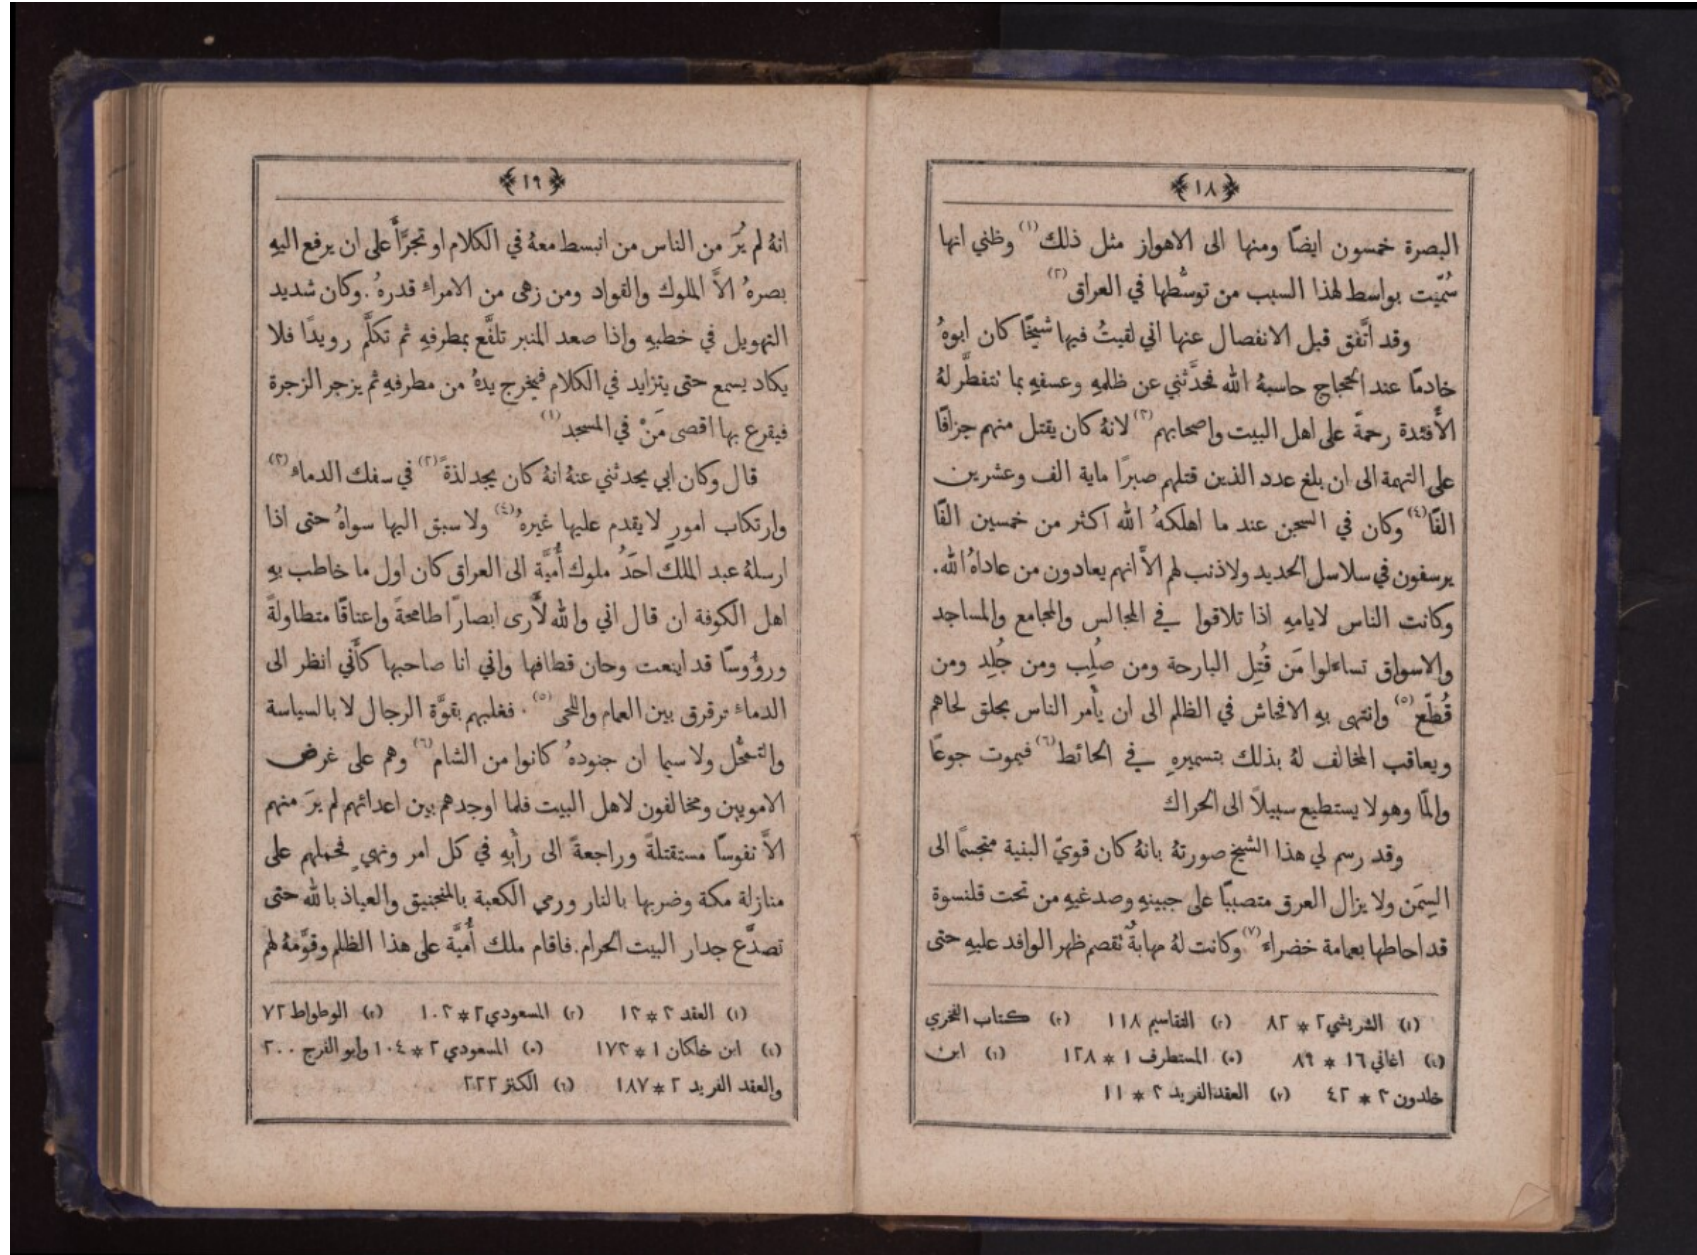 ﴿١٨﴾
البصرة خمسون ايضًا ومنها الى الاهواز مثل ذلك (١) وظني انها
سُمّيت بواسط لهذا السبب من توسُّطها في العراق (٢)
وقد اتَّفق قبل الانفصال عنها اني لقيتُ فيها شيخًا كان ابوهُ
خادمًا عند الحجاج حاسبهُ الله فحدَّثني عن ظلمهِ وعسفهِ بما تتفطَّر لهُ
الأَفئدة رحمةً على اهل البيت واصحابهم (٣) لانهُ كان يقتل منهم جزافًا
على التهمة الى ان بلغ عدد الذين قتلهم صبرًا ماية الف وعشرين
الفًا (٤) وكان في السجن عند ما اهلكهُ الله اكثر من خمسين الفًا
يرسفون في سلاسل الحديد ولا ذنب لهم الاَّ انهم يعادون من عاداهُ الله.
وكانت الناس لايامهِ اذا تلاقوا في المجالس والمجامع والمساجد
والاسواق تساءلوا مَن قُتِل البارحة ومن صُلِب ومن جُلِد ومن
قُطّع (٥) وانتهى بهِ الافحاش في الظلم الى ان يأمر الناس بحلق لحاهم
ويعاقب المخالف لهُ بذلك بتسميرهِ في الحائط (٦) فيموت جوعًا
والمًا وهو لا يستطيع سبيلاً الى الحراك
وقد رسم لي هذا الشيخ صورتهُ بانهُ كان قويّ البنية متجسمًا الى
السِمَن ولا يزال العرق متصببًا على جبينهِ وصدغيهِ من تحت قلنسوة
قد احاطها بعمامة خضراء (٧) وكانت لهُ مهابةٌ تقصم ظهر الوافد عليهِ حتى
(١) الشريشي ٢ * ٨٢ (٢) التقاسيم ١١٨ (٣) كتاب الفخري
(٤) اغاني ١٦ * ٨٩ (٥) المستطرف ١ * ١٢٨ (٦) ابن
خلدون ٣ * ٤٢ (٧) العقد الفريد ٣ * ١١
﴿١٩﴾
انهُ لم يُرَ من الناس من انبسط معهُ في الكلام او تجرَّأ على ان يرفع اليهِ
بصرهُ الاَّ الملوك والقواد ومن زهى من الامراء قدرهُ. وكان شديد
التهويل في خطبهِ واذا صعد المنبر تلفَّع بمطرفهِ ثم تكلَّم رويدًا فلا
يكاد يسمع حتى يتزايد في الكلام فيخرج يدهُ من مطرفهِ ثم يزجر الزجرة
فيقرع بها اقصى مَنْ في المسجد (١)
قال وكان ابي يحدثني عنهُ انهُ كان يجد لذةً (٢) في سفك الدماء (٣)
وارتكاب امورٍ لا يقدم عليها غيرهُ (٤) ولا سبق اليها سواهُ حتى اذا
ارسلهُ عبد الملك احَدُ ملوك أُميَّة الى العراق كان اول ما خاطب بهِ
اهل الكوفة ان قال اني والله لأَرى ابصارًا طامحةً واعناقًا متطاولةً
ورؤُوسًا قد اينعت وحان قطافها واني انا صاحبها كأَني انظر الى
الدماء ترقرق بين العمائم واللحى (٥). فغلبهم بقوَّة الرجال لا بالسياسة
والتمحُّل ولا سيما ان جنودهُ كانوا من الشام (٦) وهم على غرض
الامويين ومخالفون لاهل البيت فلما اوجدهم بين اعدائهم لم يرَ منهم
الاَّ نفوسًا مستقتلةً وراجعةً الى رأيهِ في كل امر ونهيٍ فحملهم على
منازلة مكة وضربها بالنار ورمي الكعبة بالمنجنيق والعياذ بالله حتى
تصدَّع جدار البيت الحرام. فاقام ملك أُميَّة على هذا الظلم وقوَّمهُ لهم
(١) العقد ٣ * ١٢ (٢) المسعودي ٢ * ١٠٣ (٣) الوطواط ٧٢
(٤) ابن خلكان ١ * ١٧٣ (٥) المسعودي ٢ * ١٠٤ وابو الفرج ٢٠٠
والعقد الفريد ٢ * ١٨٧ (٦) الكنز ٢٢٢